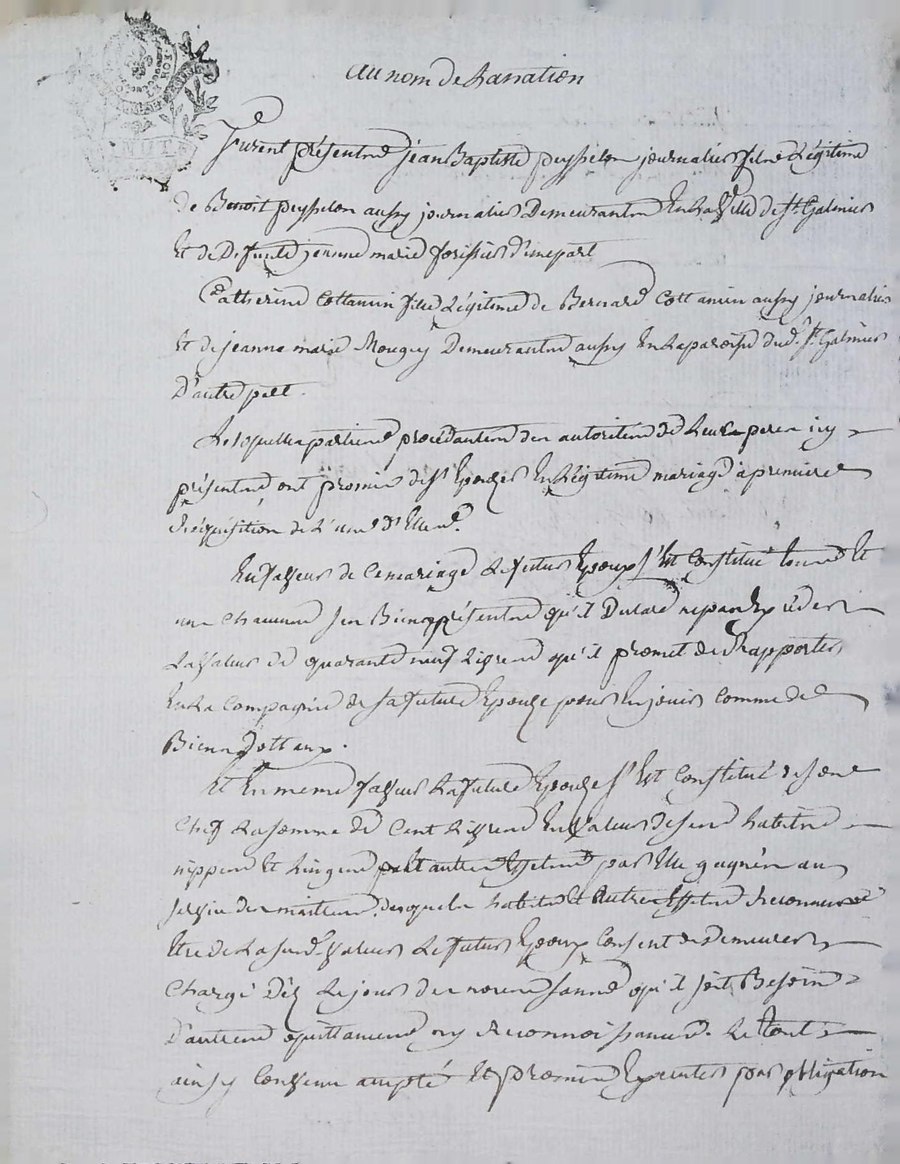 au nom de la nation
furent présents jean Baptiste peysselon journalier fils légitime
de Benoit peysselon aussy journalier Demeurants En la Ville de st Galmier
Et de Defunte jeanne marie forissier d'une part
Catherine Cottancin fille Légitime de Bernard Cottancin aussy journalier
Et de jeanne marie Demeurants aussy En la paroisse dud. st Galmier
D'autre part.
Lesquelles parties procédantes des autorités de Leurs peres icy
présents ont promis de s'Epouzer En Légitime mariage à premiere
Réquisition de L'une d'Elles.
En faveur de Ce mariage Le futur Epoux s'Est Constitué tous Et
un Chacuns ses Biens présents qu'il Déclare ne pas Exceder
La Valeur de quarante neuf Livres qu'il promet de Rapporter
En La Compagnie de sa future Epouze pour En jouir Comme de
Biens dottaux.
Et En meme faveur La future Epouze s'Est Constitué de son
Chef La somme de Cent Livres En Valeur de ses habits
nippes Et Linges Et autres Effets par Elle gagnés au
service des maitres, desquels habits Et Autres Effets Reconnus
Etre de La susd. Valeur Le futur Epoux Consent de Demeurer
Chargé Déz Le jour des noces sans qu'il soit Besoin
D'autres quittances ny Reconnoissances. Le tout
ainsy Convenu accepté Et promis Exécuter par obligation